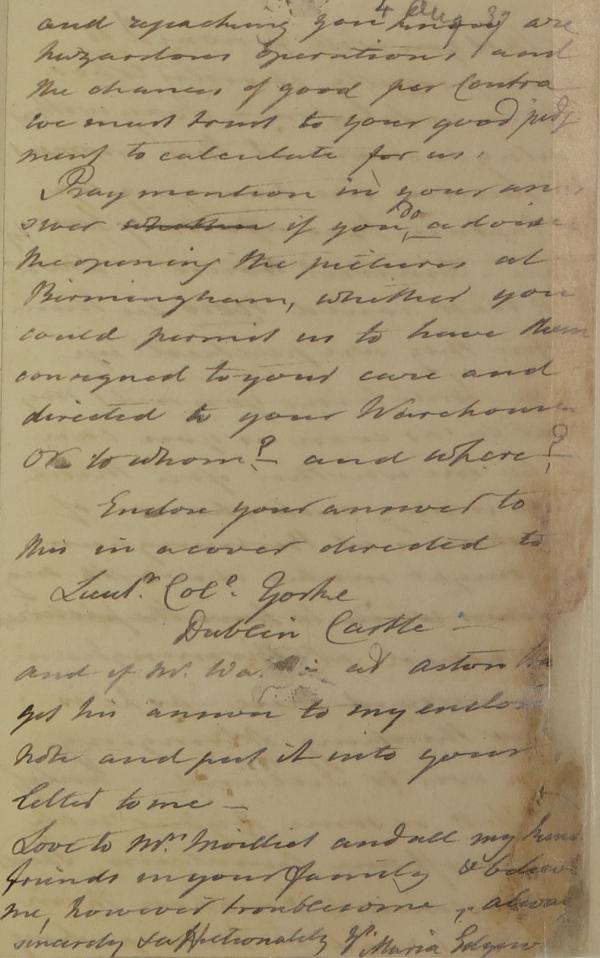 4 Aug 39
and repacking you know are
hazardous operations and
the chances of good per Contra
we must trust to your good judg
ment to calculate for us.
Pray mention in your an
swer whether if you do advise
the opening the pictures at
Birmingham, whether you
could permit us to have them
consigned to your care and
directed to your Warehouse
Or to whom? and where?
Enclose your answer to
this in a cover directed to
Lieut. Col. Yorke
Dublin Castle -
and if Mr. Wa. is at Aston
get his answer to my enclos
note and put it into your
letter to me -
Love to Mrs Moilliet and all my kind
friends in your family & believe
me, however troublesome, always
sincerely & affectionately yr. Maria Edgew